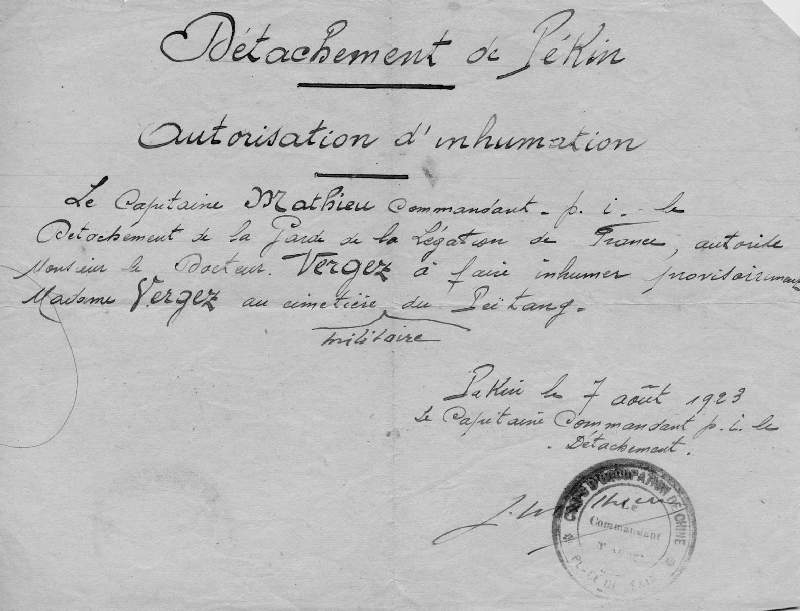 Détachement de Pékin
Autorisation d'inhumation
Le Capitaine Mathieu Commandant p. i. le
Détachement de la Garde de la Légation de France, autorise
Monsieur le Docteur Vergez à faire inhumer provisoirement
Madame Vergez au cimetière du Peïtang.
militaire
Pékin le 7 août 1923
Le Capitaine Commandant p. i. le
Détachement.
CORPS D'OCCUPATION DE CHINE
Le
Commandant